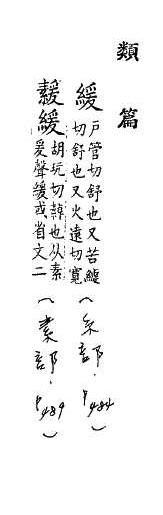 類篇
緩 戶管切舒也又苦緩
切舒也又火遠切寬 (糸部.P484)
䌍緩 胡玩切䋎也从素
爰聲緩或省文二 (素部.P489)